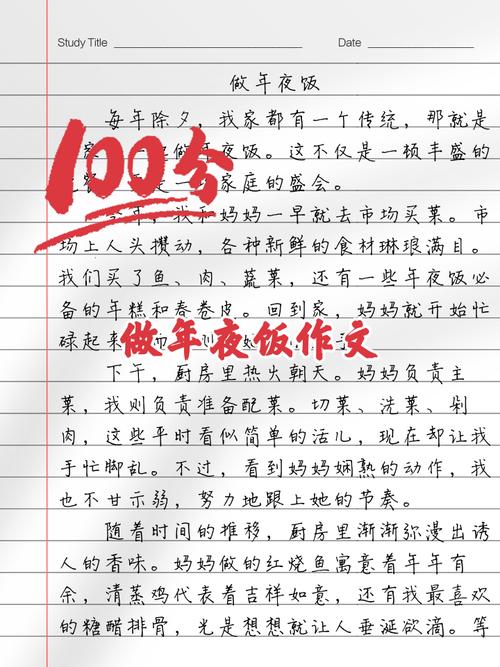 Study Title
Date
做年夜饭
每年除夕，我家都有一个传统，那就是
做年夜饭。这不仅是一顿丰盛的
家庭的盛会。
100分
我和妈妈一早就去市场买菜。市
场上人头攒动，各种新鲜的食材琳琅满目。
我们买了鱼、肉、蔬菜，还有一些年夜饭必
备的年糕和春卷皮。回到家，妈妈就开始忙
碌起来
做年夜饭作文
下午，厨房里热火朝天。妈妈负责主
菜，我则负责准备配菜。切菜、洗菜、剁
肉，这些平时看似简单的活儿，现在却让我
手忙脚乱。不过，看到妈妈娴熟的动作，我
也不甘示弱，努力地跟上她的节奏。
随着时间的推移，厨房里渐渐弥漫出诱
人的香味。妈妈做的红烧鱼寓意着年年有
余，清蒸鸡代表着吉祥如意，还有我最喜欢
的糖醋排骨，光是想想就让人垂涎欲滴。等